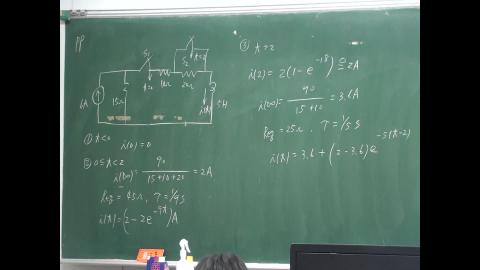 PP
S₁
S₂
t=2
t=0
10Ω
20Ω
6A
15Ω
i(t)
5H
① t<0
i(0)=0
② 0≤t<2
i(∞)= 90/(15+10+20) = 2A
Req = 45Ω, T=1/9 s
i(t)=(2-2e^{-9t})A
③ t=2
i(2)=2(1-e^{-18})≅2A
i(∞)= 90/(15+10) = 3.6A
Req=25Ω, T=1/5 s
i(t)=3.6+(2-3.6)e^{-5(t-2)}